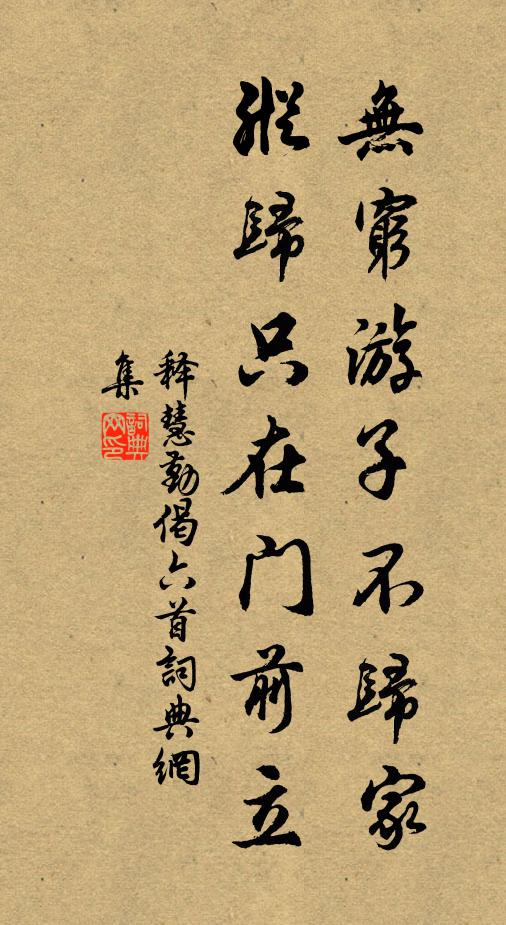 無窮游子不歸家
縱歸只在门前立
释慧勤偈六首詞典網
集
詞典
网印